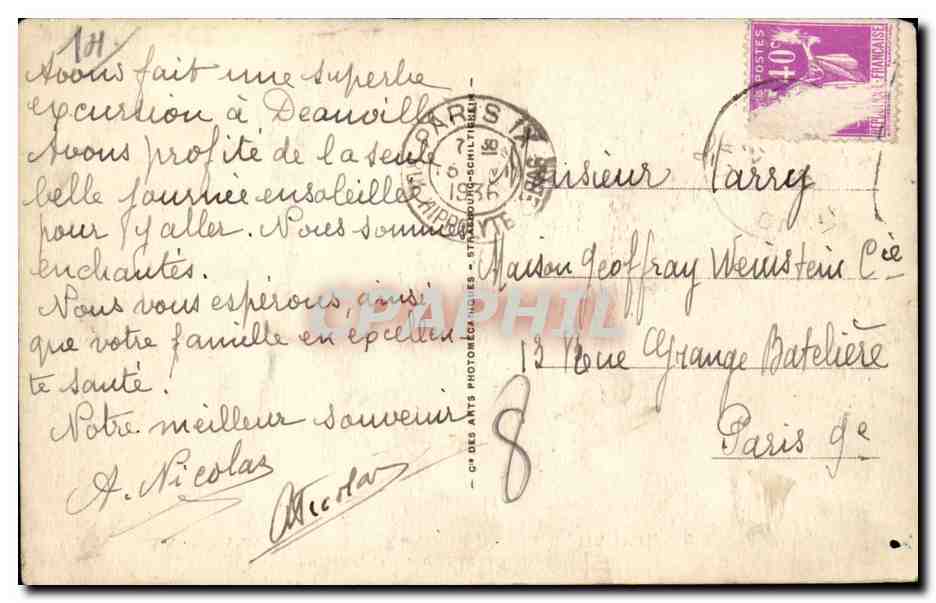 1H
Avons fait une superbe
excursion à Deauville
Avons profité de la seule
belle journée ensoleillée
pour y aller. Nous sommes
enchantés.
Nous vous espérons, ainsi
que votre famille en excellen-
te santé.
Notre meilleur souvenir
A. Nicolas
Nicolas
— Cie DES ARTS PHOTOMÉCANIQUES — STRASBOURG-SCHILTIGHEIM —
PARIS IX
7 30
6
1936
HIPPOLYTE LEBAS
POSTES
40c
RÉPUBLIQUE FRANÇAISE
Monsieur Tarry
Maison Geoffray Weinstein Cie
13 Rue Grange Batelière
Paris 9e
8
CPAPHIL